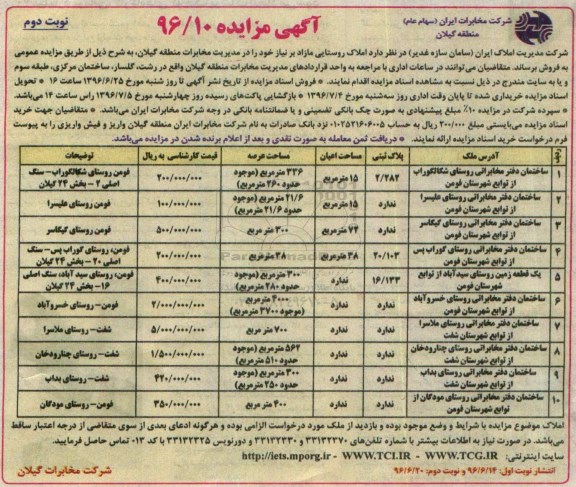 شرکت مخابرات ایران (سهام عام)
منطقه گیلان
آگهی مزایده ۹۶/۱۰
نوبت دوم
شرکت مدیریت املاک ایران (سامان سازه غدیر) در نظر دارد املاک روستایی مازاد بر نیاز خود را در مدیریت مخابرات منطقه گیلان، به شرح ذیل از طریق مزایده عمومی
به فروش برساند. متقاضیان می‌توانند در ساعات اداری با مراجعه به واحد قراردادهای مدیریت مخابرات منطقه گیلان واقع در رشت، گلسار، ساختمان مرکزی، طبقه سوم
و یا به سایت مندرج در ذیل نسبت به مشاهده اسناد مزایده اقدام نمایند. * فروش اسناد مزایده از تاریخ نشر آگهی تا روز شنبه مورخ ۱۳۹۶/۶/۲۵ ساعت ۱۶ * تحویل
اسناد مزایده خریداری شده تا پایان وقت اداری روز سه‌شنبه مورخ ۱۳۹۶/۷/۴ * بازگشایی پاکت‌های رسیده روز چهارشنبه مورخ ۱۳۹۶/۷/۵ راس ساعت ۱۴ می‌باشد.
* سپرده شرکت در مزایده ۱۰٪ مبلغ پیشنهادی به صورت چک بانکی تضمینی و یا ضمانتنامه بانکی در وجه شرکت مخابرات ایران می‌باشد. * متقاضیان جهت خرید
اسناد مزایده می‌بایستی مبلغ ۲۰۰/۰۰۰ ریال به حساب ۰۱۰۲۵۳۱۶۰۶۰۰۵ نزد بانک صادرات به نام شرکت مخابرات ایران منطقه گیلان واریز و فیش واریزی را به پیوست
فرم درخواست خرید اسناد مزایده ارائه نمایند. * دریافت ثمن معامله به صورت نقدی و بعد از اعلام برنده شدن در مزایده می‌باشد.
ردیف آدرس ملک پلاک ثبتی مساحت اعیان مساحت عرصه قیمت کارشناسی به ریال توضیحات
۱ ساختمان دفتر مخابراتی روستای شکالگوراب از توابع شهرستان فومن ۲/۲۸۲ ۱۵ مترمربع ۳۳۶ مترمربع (موجود حدود ۲۶۰ مترمربع) ۲۰۰/۰۰۰/۰۰۰ فومن روستای شکالگوراب- سنگ اصلی ۲ - بخش ۲۴ گیلان
۲ ساختمان دفتر مخابراتی روستای علیسرا از توابع شهرستان فومن ندارد ۱۵ مترمربع ۲۱/۶ مترمربع (موجود حدود ۲۱/۶ مترمربع) ۱۰۰/۰۰۰/۰۰۰ فومن روستای علیسرا
۳ ساختمان دفتر مخابراتی روستای گیگاسر از توابع شهرستان فومن ندارد ۷۲ مترمربع ۳۰۰ متر مربع ۵۰۰/۰۰۰/۰۰۰ فومن روستای گیگاسر
۴ ساختمان دفتر مخابراتی روستای گوراب پس از توابع شهرستان فومن ۲۰/۱۰۳ ۳۸ مترمربع ۳۸ مترمربع ۲۰۰/۰۰۰/۰۰۰ فومن، روستای گوراب پس- سنگ اصلی ۲۰ - بخش ۲۴ گیلان
۵ یک قطعه زمین روستای سیدآباد از توابع شهرستان فومن ۱۶/۱۳۳ ندارد ۳۰۰ مترمربع (موجود حدود ۲۸۰ مترمربع) ۴۰۰/۰۰۰/۰۰۰ فومن، روستای سید آباد، سنگ اصلی ۱۶- بخش ۲۴ گیلان
۶ ساختمان دفتر مخابراتی روستای خسروآباد از توابع شهرستان فومن ندارد ندارد ۴۰۰۰ مترمربع (موجود ۳۷۰۰ مترمربع) ۲/۰۰۰/۰۰۰/۰۰۰ فومن- روستای خسروآباد
۷ ساختمان دفتر مخابراتی روستای ملاسرا از توابع شهرستان شفت ندارد ندارد ۷۰۰ متر مربع ۵/۰۰۰/۰۰۰/۰۰۰ شفت- روستای ملاسرا
۸ ساختمان دفتر مخابراتی روستای چنارودخان از توابع شهرستان شفت ندارد ندارد ۵۶۲ مترمربع (موجود حدود ۵۱۰ مترمربع) ۱/۵۰۰/۰۰۰/۰۰۰ شفت- روستای چنارودخان
۹ ساختمان دفتر مخابراتی روستای بداب از توابع شهرستان شفت ندارد ندارد ۳۰۰ مترمربع (موجود حدود ۲۵۰ مترمربع) ۴۲۰/۰۰۰/۰۰۰ شفت- روستای بداب
۱۰ ساختمان دفتر مخابراتی روستای مودگان از توابع شهرستان فومن ندارد ندارد ۴۰۰ متر مربع ۳۵۰/۰۰۰/۰۰۰ فومن- روستای مودگان
املاک موضوع مزایده با شرایط و وضع موجود بوده و بازدید از ملک مورد درخواست الزامی بوده و هرگونه ادعای بعدی از سوی متقاضی از درجه اعتبار ساقط
می‌باشد. در صورت نیاز به اطلاعات بیشتر با شماره تلفن‌های ۳۳۱۳۲۲۷۰ و ۳۳۱۳۲۳۳۰ و دورنویس ۳۳۱۳۲۳۲۵ با کد ۰۱۳ تماس حاصل فرمایید.
سایت اینترنتی: http://iets.mporg.ir - WWW.TCI.IR - WWW.TCG.IR
انتشار نوبت اول: ۹۶/۶/۱۴ و نوبت دوم: ۹۶/۶/۲۰
شرکت مخابرات گیلان